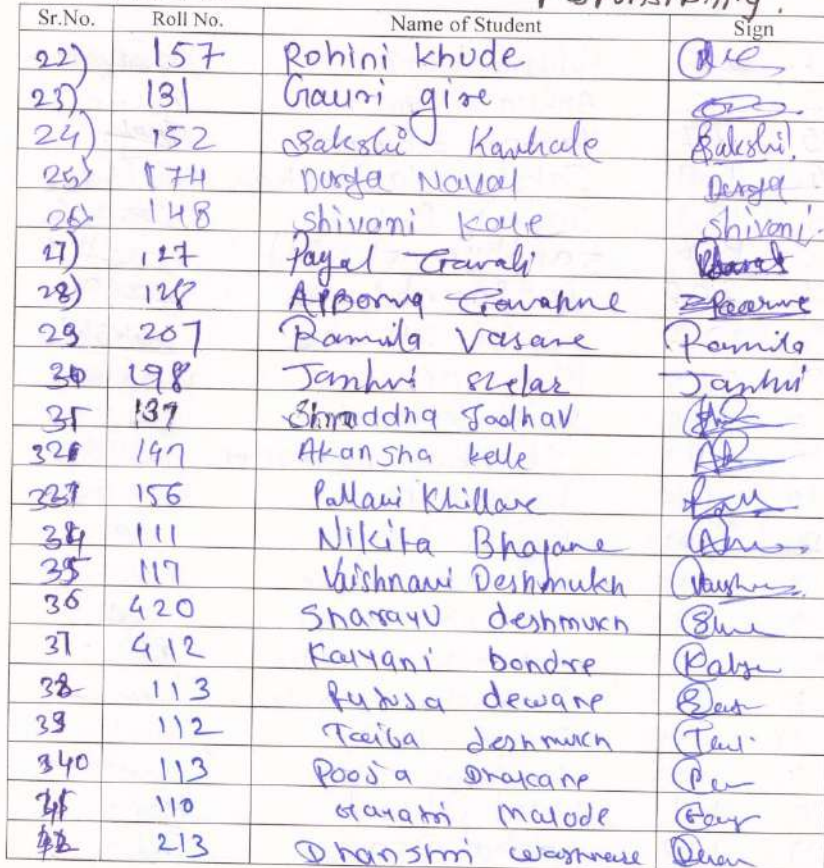 Sr.No. Roll No. Name of Student Sign
22) 157 Rohini Khude
23) 131 Gauri gire
24) 152 Sakshi Kavhale Sakshi
25) 174 Durga Naval Durga
26) 148 Shivani Kale Shivani
27) 127 Payal Gavali
28) 128
29 207 Pamila Vasave Pamila
30 198 Janhvi Shelar Janhvi
31 137 Shraddha Jadhav
32 147 Akansha kale
33 156 Pallavi Khillare
34 111 Nikita Bhajane
35 117 Vaishnavi Deshmukh
36 420 Sharayu deshmukh
37 412 Kalyani bondre
38 113 deware
39 112 Taiba deshmukh
40 113 Pooja Dhakane
110 Gayatri Malode
213 Dhanshri